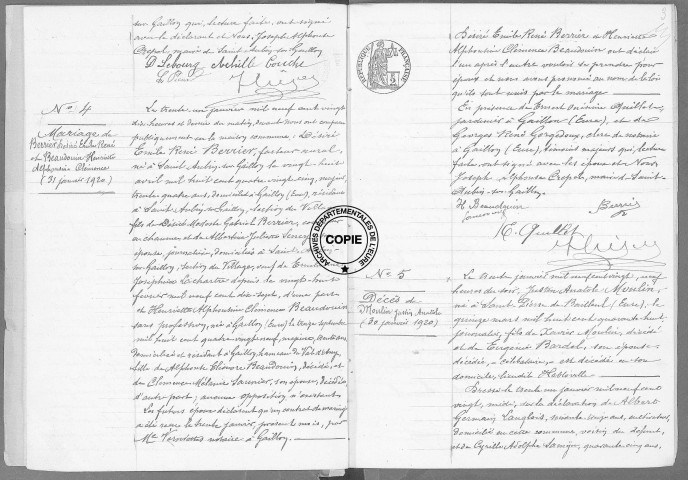 sur Gaillon qui, lecture faite, ont signé
avec le déclarant et Nous, Joseph Alphonse
maire de Saint-Aubin-sur-Gaillon
D Lebourg Achille Couche
No 4
Mariage de
Berrier Désiré Emile René
et Beaudouin Henriette
Alphonsine Clémence
(31 janvier 1920)
Le trente un janvier mil neuf cent vingt
heures devant nous ont comparu
publiquement en la maison commune : Désiré
Emile René Berrier, facteur rural,
né à Saint-Aubin-sur-Gaillon le vingt-huit
avril mil huit cent quatre-vingt-cinq, majeur,
trente quatre ans, domicilié à Gaillon (Eure), résidant
à Saint-Aubin-sur-Gaillon, section de
fils de Désiré Modeste Gabriel Berrier,
en chaumes et de Juliesse
épouse, journalière, domiciliés à Saint-Aubin-
sur-Gaillon, section du Village, veuf de
Joséphine depuis le vingt-huit
février mil neuf cent dix-sept, d'une part
et Henriette Alphonsine Clémence Beaudouin
sans profession, née à Gaillon (Eure) le treize septembre
mil huit cent quatre-vingt-neuf, majeure, trente ans
domiciliée et résidant à Gaillon, hameau du
fille de Alphonse Beaudouin, décédé, et
de Clémence Mélanie son épouse,
d'autre part, aucune opposition n'existant
Les futurs époux déclarent qu'un contrat de mariage
a été reçu le trente janvier, présent mois, par
Me notaire à Gaillon.
RÉPUBLIQUE FRANÇAISE
ARCHIVES DÉPARTEMENTALES DE L'EURE
COPIE
Désiré Emile René Berrier et Henriette
Alphonsine Clémence Beaudouin ont déclaré
l'un après l'autre vouloir se prendre pour
époux et nous avons prononcé au nom de la loi
qu'ils sont unis par le mariage
En présence de Ernest Onésime Quillet
jardinier à Gaillon (Eure), et de
Georges René clerc de notaire
à Gaillon (Eure), témoins majeurs qui, lecture
faite, ont signé avec les époux et Nous
Joseph Alphonse maire de Saint-
Aubin-sur-Gaillon.
H Beaudouin Berrier
E. Quillet
No 5
Décès de
Moulin Justin Anatole
(30 janvier 1920)
Le trente janvier mil neuf cent vingt, neuf
heures du soir, Justin Anatole Moulin,
né à Saint-Pierre de Bailleul (Eure), le
quinze mars mil huit cent quarante-huit,
journalier, fils de Moulin, décédé
et de Eugénie son épouse
décédée, célibataire, est décédé en son
domicile,
Dressé le trente un janvier mil neuf cent
vingt, midi, sur la déclaration de Albert
Germain Langlois, ans, cultivateur,
domicilié en cette commune, voisin du défunt,
et de Cyrille Adolphe quarante cinq ans,